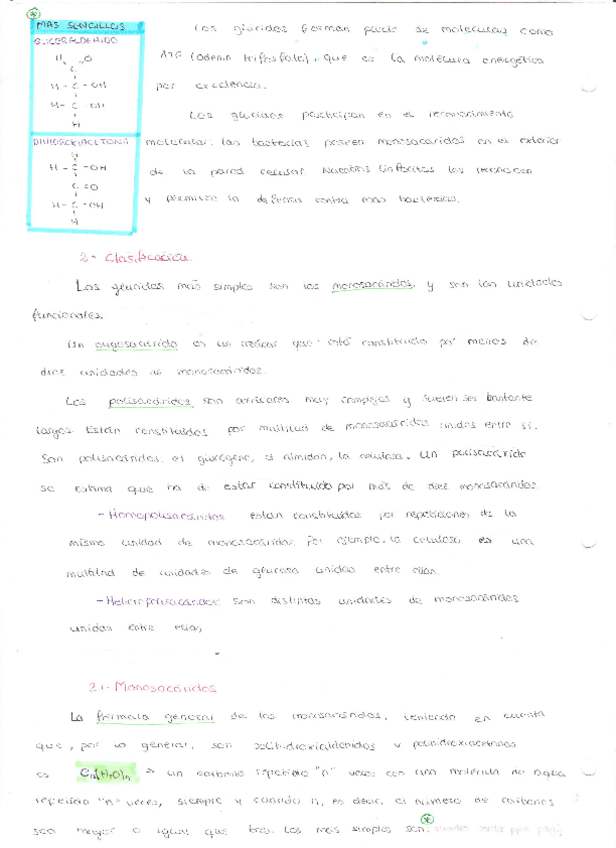 MÁS SENCILLOS
GLICERALDEHIDO
H O
C
H - C - OH
H - C - OH
H
DIHIDROXIACETONA
H
H - C - OH
C = O
H - C - OH
H
Los glúcidos forman parte de moléculas como
ATP (adenin trifosfato), que es la molécula energética
por excelencia.
Los glúcidos participan en el reconocimiento
molecular: las bacterias poseen monosacáridos en el exterior
de la pared celular. Nuestros linfocitos los reconocen
y permiten la defensa contra esas bacterias.
2.- Clasificación
Los glúcidos más simples son los monosacáridos, y son las unidades
funcionales.
Un oligosacárido es un azúcar que está constituido por menos de
diez unidades de monosacáridos.
Los polisacáridos son azúcares muy complejos y suelen ser bastante
largos. Están constituidos por multitud de monosacáridos unidos entre sí.
Son polisacáridos: el glucógeno, el almidón, la celulosa. Un polisacárido
se estima que ha de estar constituido por más de diez monosacáridos.
- Homopolisacáridos están constituidos por repeticiones de la
misma unidad de monosacáridos, por ejemplo, la celulosa es una
multitud de unidades de glucosa unidas entre ellas.
- Heteropolisacáridos son distintas unidades de monosacáridos
unidas entre ellas,
2.1- Monosacáridos
La fórmula general de los monosacáridos, teniendo en cuenta
que, por lo general, son polihidroxialdehídos y polihidroxiacetonas
es Cn(H2O)n → un carbono repetido "n" veces con una molécula de agua
repetida "n" veces, siempre y cuando n, es decir, el número de carbonos
sea mayor o igual que tres. Los más simples son: